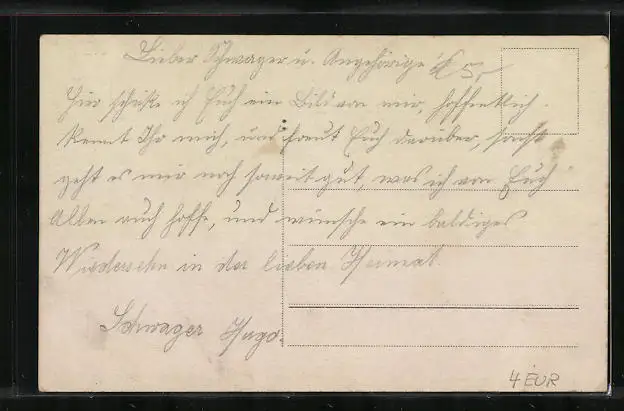 Lieber Schwager u. Angehörige! 5,-
Hier schicke ich Euch ein Bild von mir, hoffentlich
kennt Ihr mich, und freut Euch darüber, sonst
geht es mir noch soweit gut, was ich von Euch
Allen auch hoffe, und wünsche ein baldiges
Wiedersehn in der lieben Heimat.
Schwager Hugo.
4 EUR